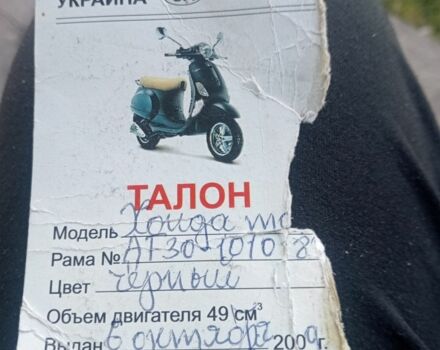 УКРАИНА
ТАЛОН
Модель Хонда
Рама № AF30-1010 8
Цвет чёрный
Объем двигателя 49 см³
Выдан 6 октября 2009г.